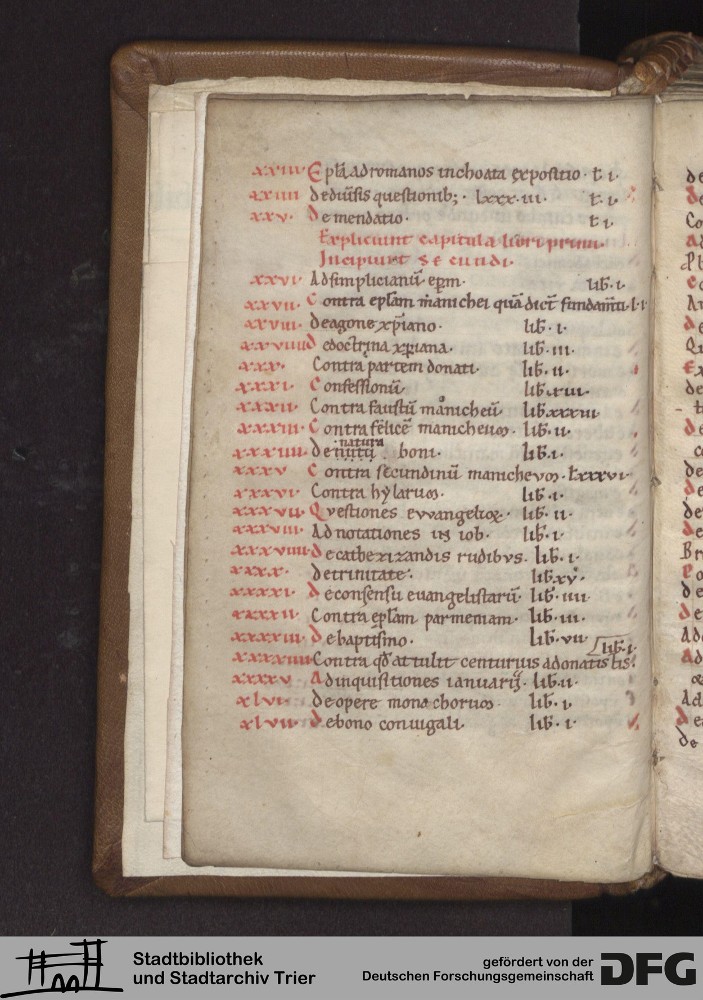 xxiii Epła adromanos inchoata expositio · ł· i·
xxiiii Dediűsis questionib; · lxxx·iii· ł· i·
xxv· De mendatio· ł i·
Expliciunt capitula libri primi·
Incipiunt Secundi·
xxvi· Adsimplicianū ep̄m· lib̄· i·
xxvii· Contra epłam manichei quā dicť fundam̄ti· l·i·
xxviii· Deagone xp̄iano· lib̄· i·
xxviiii Dedoctrina xp̄iana· lib̄· iii·
xxx· Contra partem donati· lib̄· ii·
xxxi· Confessionū lib̄·xiii·
xxxii· Contra faustū manicheū· lib̄·xxxiii
xxxiii· Contra felicē manicheum· lib̄· ii·
xxxiiii· De natura boni· lib̄· i·
xxxv Contra secundinū manicheum·
xxxvi· Contra hylarum· lib̄· i·
xxxvii· Questiones evvangelioꝝ· lib̄· ii·
xxxviii· Adnotationes in iob· lib̄· i·
xxxviiii· Decathezizandis rudibus· lib̄· i·
xxxx· Detrinitate· lib̄·xv·
xxxxi· Deconsensu euangelistarū· lib̄· iiii·
xxxxii· Contra epłam parmeniam· lib̄· iii·
xxxxiii· Debaptismo· lib̄· vii
lib̄· i·
xxxxiiii Contra qđ attulit centurius adonatistis·
xxxxv Adinquisitiones ianuarij· lib̄·ii·
xlvi· Deopere monachorum· lib̄· i·
xlvii· Debono coniugali· lib̄· i·
Stadtbibliothek
und Stadtarchiv Trier
gefördert von der
Deutschen Forschungsgemeinschaft
DFG